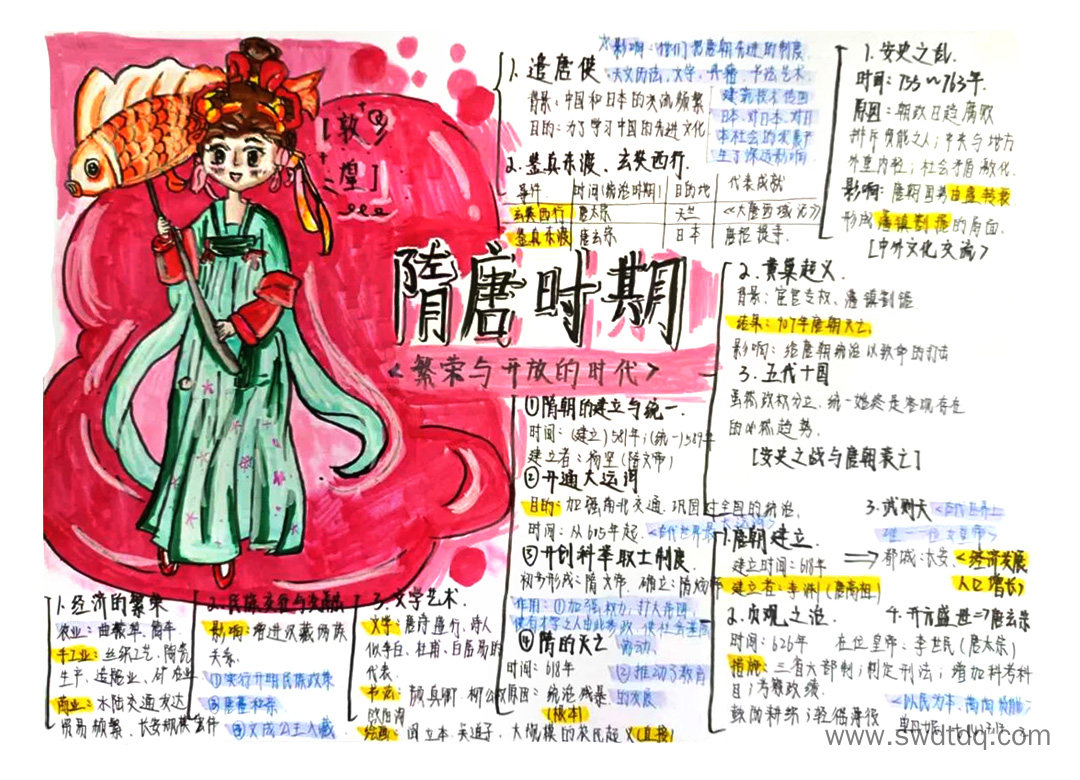 [敦
煌]
隋唐时期
<繁荣与开放的时代>
1. 遣唐使
背景:中国和日本的交流频繁
目的:为了学习中国的先进文化
☆影响:他们把唐朝先进的制度
、天文历法、文学、典籍、书法艺术
建筑技术传回
日本,对日本,对日
本社会的发展产
生了深远影响
2. 鉴真东渡、玄奘西行.
事件 时间(统治时期) 目的地 代表成就
玄奘西行 唐太宗 天竺 《大唐西域记》
鉴真东渡 唐玄宗 日本 唐招提寺.
[中外文化交流>
1. 安史之乱.
时间:755~763年.
原因:朝政日趋腐败
社会矛盾激化.
影响:唐朝国势由盛转衰
形成藩镇割据的局面.
2. 黄巢起义.
背景:宦官专权、藩镇割据
结果:907年唐朝灭亡
影响:给唐朝统治以致命的打击
3. 五代十国
虽然政权分立,统一始终是客观存在
的必然趋势.
[安史之战与唐朝衰亡]
①隋朝的建立与统一.
时间:(建立)581年;(统一)589年
建立者:杨坚(隋文帝)
②开通大运河
目的:加强南北交通,巩固对全国的统治.
时间:从605年起.
③开创科举取士制度
初步形成:隋文帝. 确立:隋炀帝
②推动了教育
的发展
④隋的灭亡
时间:618年
原因:统治残暴
(根本)
大规模的农民起义(直接)
1. 唐朝建立.
建立时间:618年
建立者:李渊(唐高祖)
⟹都城:长安.
2. 贞观之治.
时间:626年 在位皇帝:李世民(唐太宗)
措施:三省六部制;制定刑法;增加科考科
目;考察政绩.
鼓励耕织;轻徭薄役
<以民为本,
3. 武则天
<经济发展
人口增长>
4. 开元盛世⇒唐玄宗
1. 经济的繁荣
农业:曲辕犁、筒车.
手工业:丝织工艺、陶瓷
生产、造船业、矿冶业
商业:水陆交通发达
贸易频繁、长安
影响:增进汉藏
关系.
①实行开明民族政策
③文成公主入藏
3. 文学艺术.
文学:唐诗盛行、诗人
似李白、杜甫、白居易的
代表.
书法:颜真卿、柳公权
欧阳询
绘画:阎立本、吴道子,
www.swdtdq.com